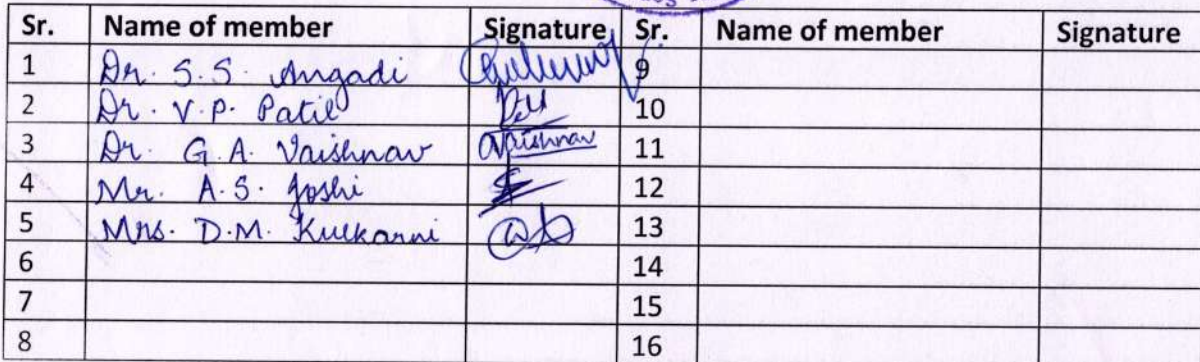 Sr. Name of member Signature Sr. Name of member Signature
1 Dr. S.S. Angadi 9
2 Dr. V.P. Patil 10
3 Dr. G.A. Vaishnav Vaishnav 11
4 Mr. A.S. Joshi 12
5 Mrs. D.M. Kulkarni 13
6 14
7 15
8 16